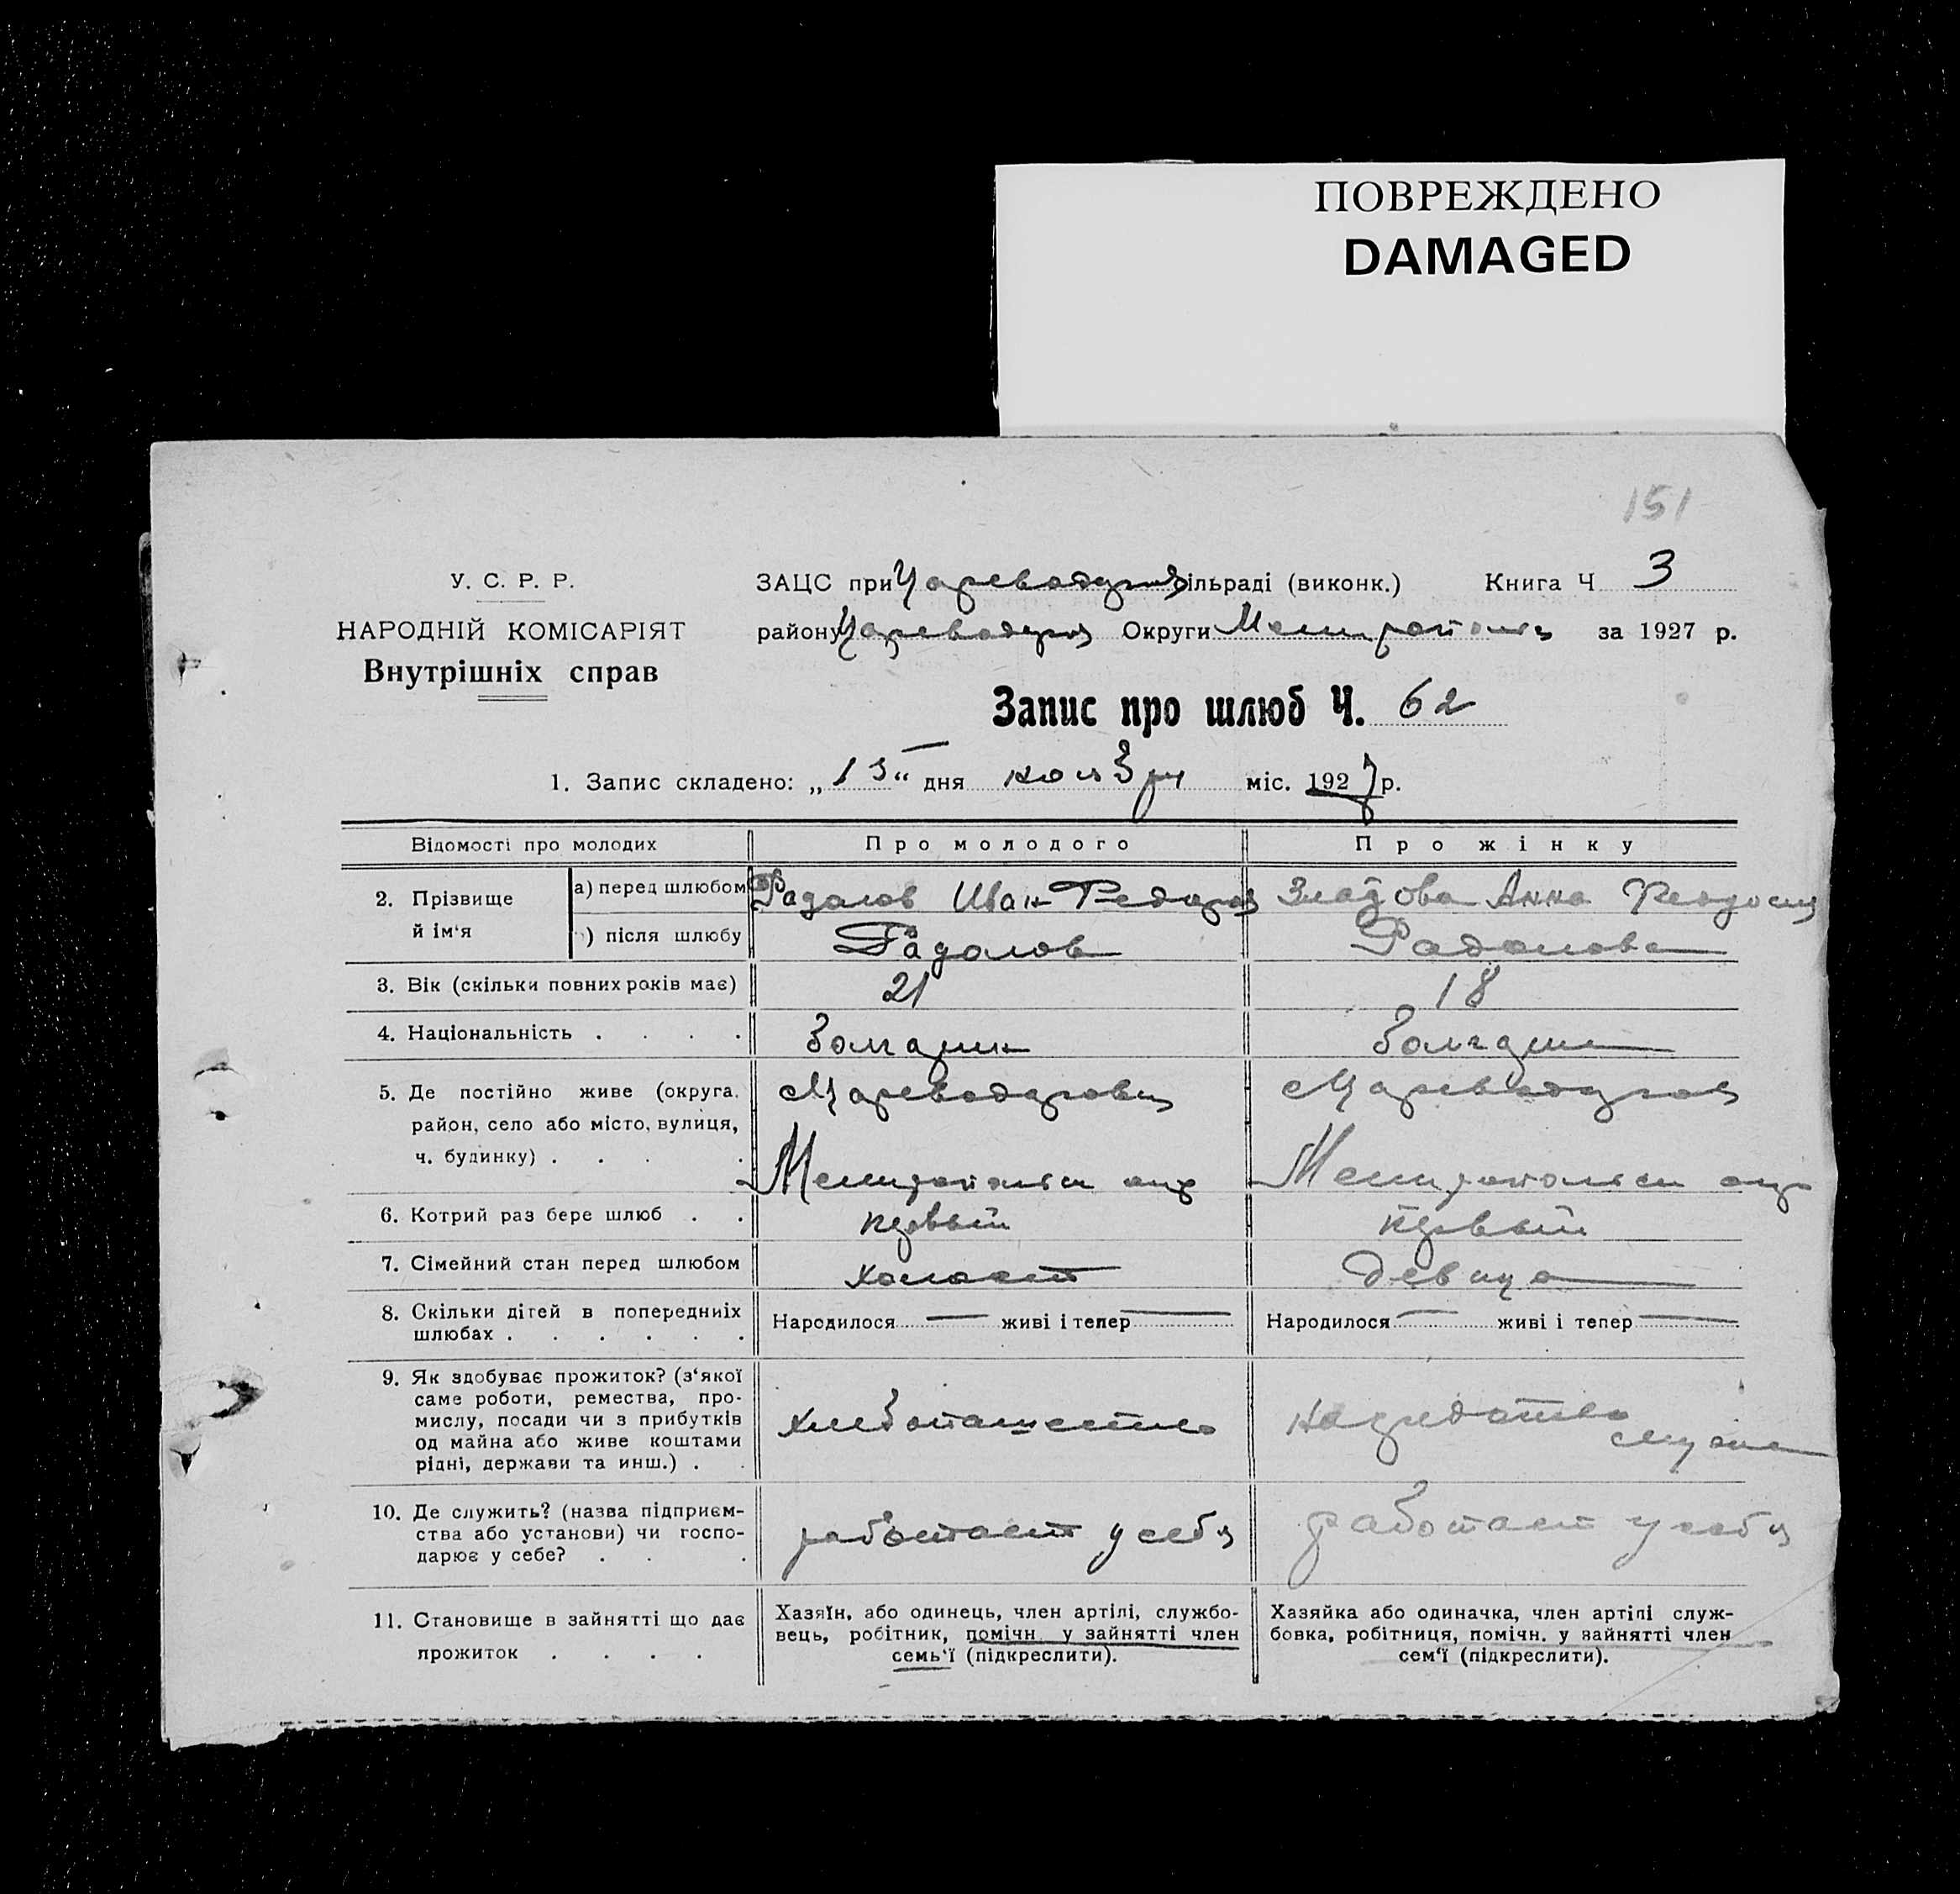 ПОВРЕЖДЕНО
DAMAGED
151
У. С. Р. Р.
НАРОДНІЙ КОМІСАРІЯТ
Внутрішніх справ
ЗАЦС при Царевода сільраді (виконк.) Книга Ч 3
району Округи за 1927 р.
Запис про шлюб Ч. 62
1. Запис складено: „13“ дня ноября міс. 1927 р.
Відомості про молодих Про молодого Про жінку
2. Прізвище й ім‘я
а) перед шлюбом Радолов Иван Федоров Златова Анна Феодосия
) після шлюбу Радолов Радолова
3. Вік (скільки повних років має) 21 18
4. Національність . . . . болгарин болгарин
5. Де постійно живе (округа, район, село або місто, вулиця, ч. будинку) . . . .
с Мелитопольск окр с Мелитопольск окр
6. Котрий раз бере шлюб . . первый первый
7. Сімейний стан перед шлюбом холост девица
8. Скільки дітей в попередниіх шлюбах . . . . . .
Народилося — живі і тепер — Народилося — живі і тепер —
9. Як здобуває прожиток? (з‘якої саме роботи, ремества, промислу, посади чи з прибутків од майна або живе коштами рідні, держави та инш.) . .
хлебопашество на средства мужа
10. Де служить? (назва підприємства або установи) чи господарює у себе? . . .
работает у себя работает у себя
11. Становище в зайнятті що дає прожиток . . . .
Хазяїн, або одинець, член артілі, службовець, робітник, помічн. у зайнятті член семь‘ї (підкреслити).
Хазяйка або одиначка, член артілі службовка, робітниця, помічн. у зайнятті член сем‘ї (підкреслити).